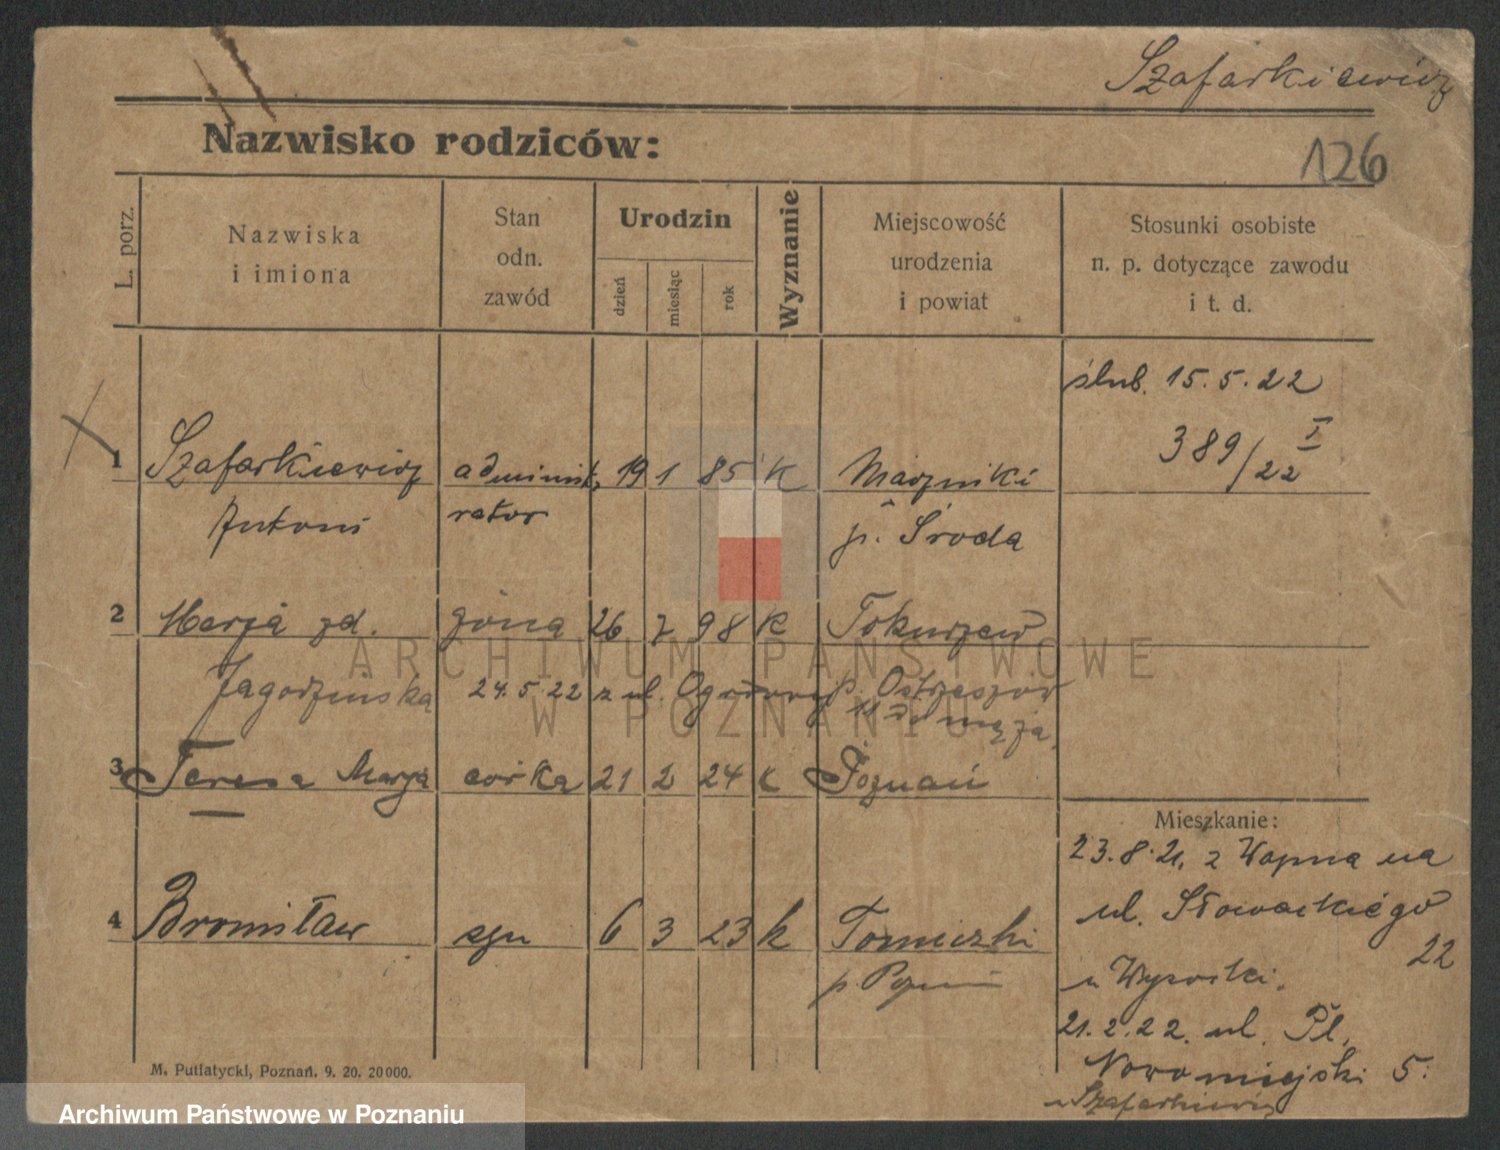 Szafarkiewicz
Nazwisko rodziców:
126
L. porz.
Nazwiska
i imiona
Stan
odn.
zawód
Urodzin
dzień
miesiąc
rok
Wyznanie
Miejscowość
urodzenia
i powiat
Stosunki osobiste
n. p. dotyczące zawodu
i t. d.
ślub. 15.5.22
389/22 I
1 Szafarkiewicz administ. 19 1 85 K Mączniki
Antoni rator p. Środa
2 Marja zd. żona 26 7 98 K Tokarzew
Jagodzińska 24.5.22 z ul. Ogrodowej p. Ostrzeszów
11 od męża.
3 Teresa Marja córka 21 2 24 K Poznań
Mieszkanie:
23.8.21. z Wapna na
ul. Słowackiego
22
4 Bronisław syn 6 3 23 k Tomiczki
p. Pozn
u Wysocki.
21.2.22. ul. Pl.
Nowomiejski 5.
u Szafarkiewicz
M. Putiatycki, Poznań. 9. 20. 20000.
ARCHIWUM PAŃSTWOWE
W POZNANIU
Archiwum Państwowe w Poznaniu